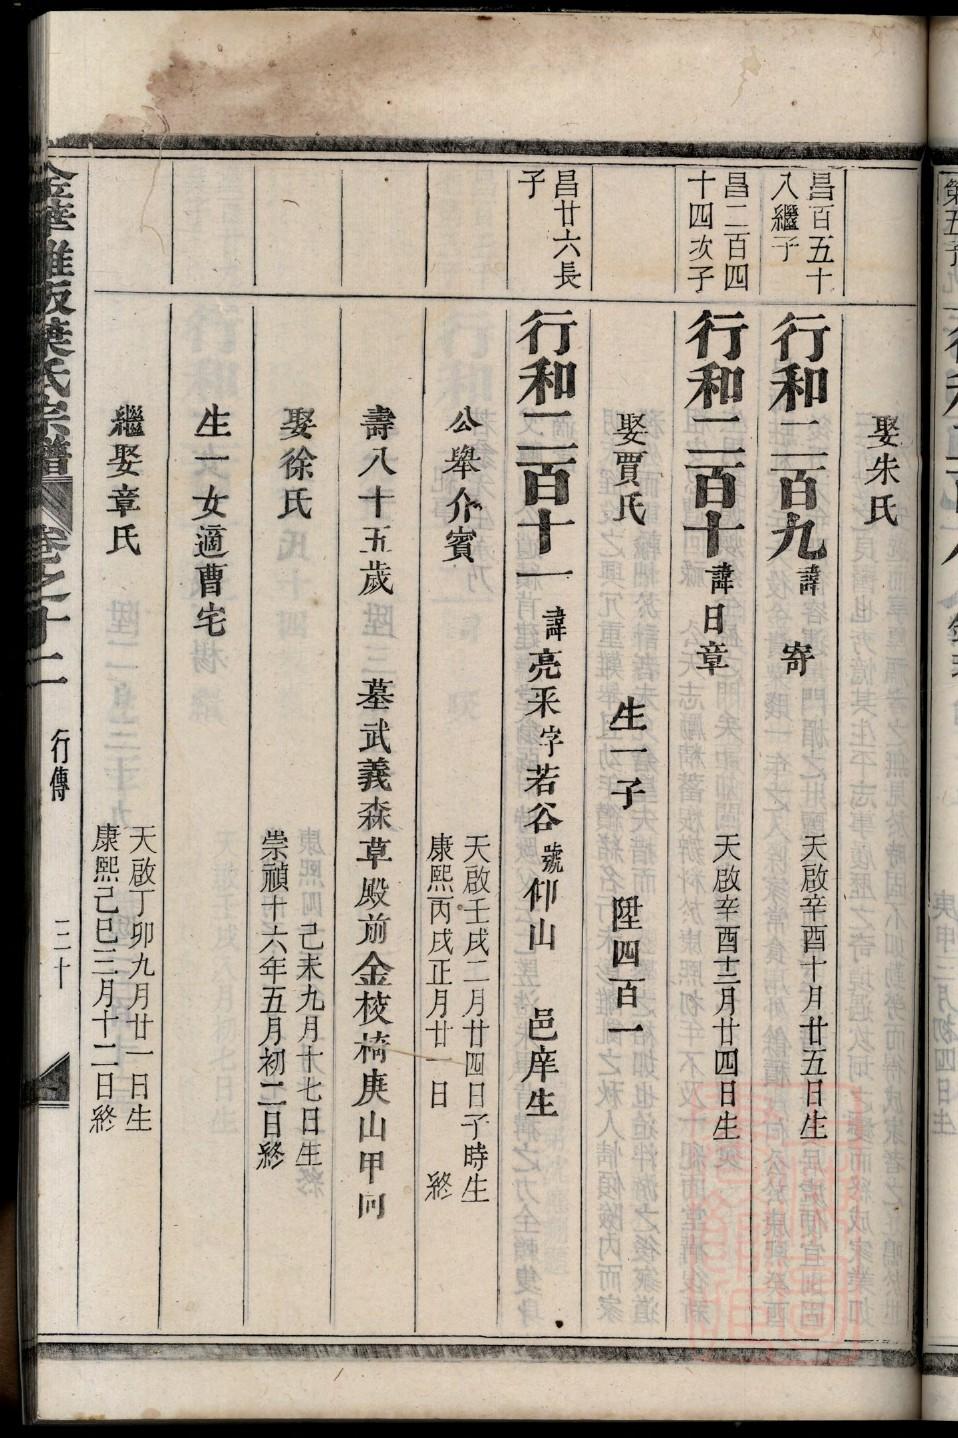 娶朱氏
昌百五十
八繼子
行和二百九諱 寄
天啟辛酉十月廿五日生
昌二百四
十四次子
行和二百十諱日章
天啟辛酉十二月廿四日生
娶賈氏 生一子 陞四百一
昌廿六長
子
行和二百十一諱亮采字若谷號仰山 邑庠生
公舉介賓
天啟壬戌二月廿四日子時生
康熙丙戌正月廿一日 終
壽八十五歲 墓武義森草殿前金校椅庚山甲向
娶徐氏
己未九月十七日生
崇禎十六年五月初二日終
生一女適曹宅
繼娶章氏
天啟丁卯九月廿一日生
康熙己巳三月十二日終
葉氏宗譜 卷之十二 行傳 三十